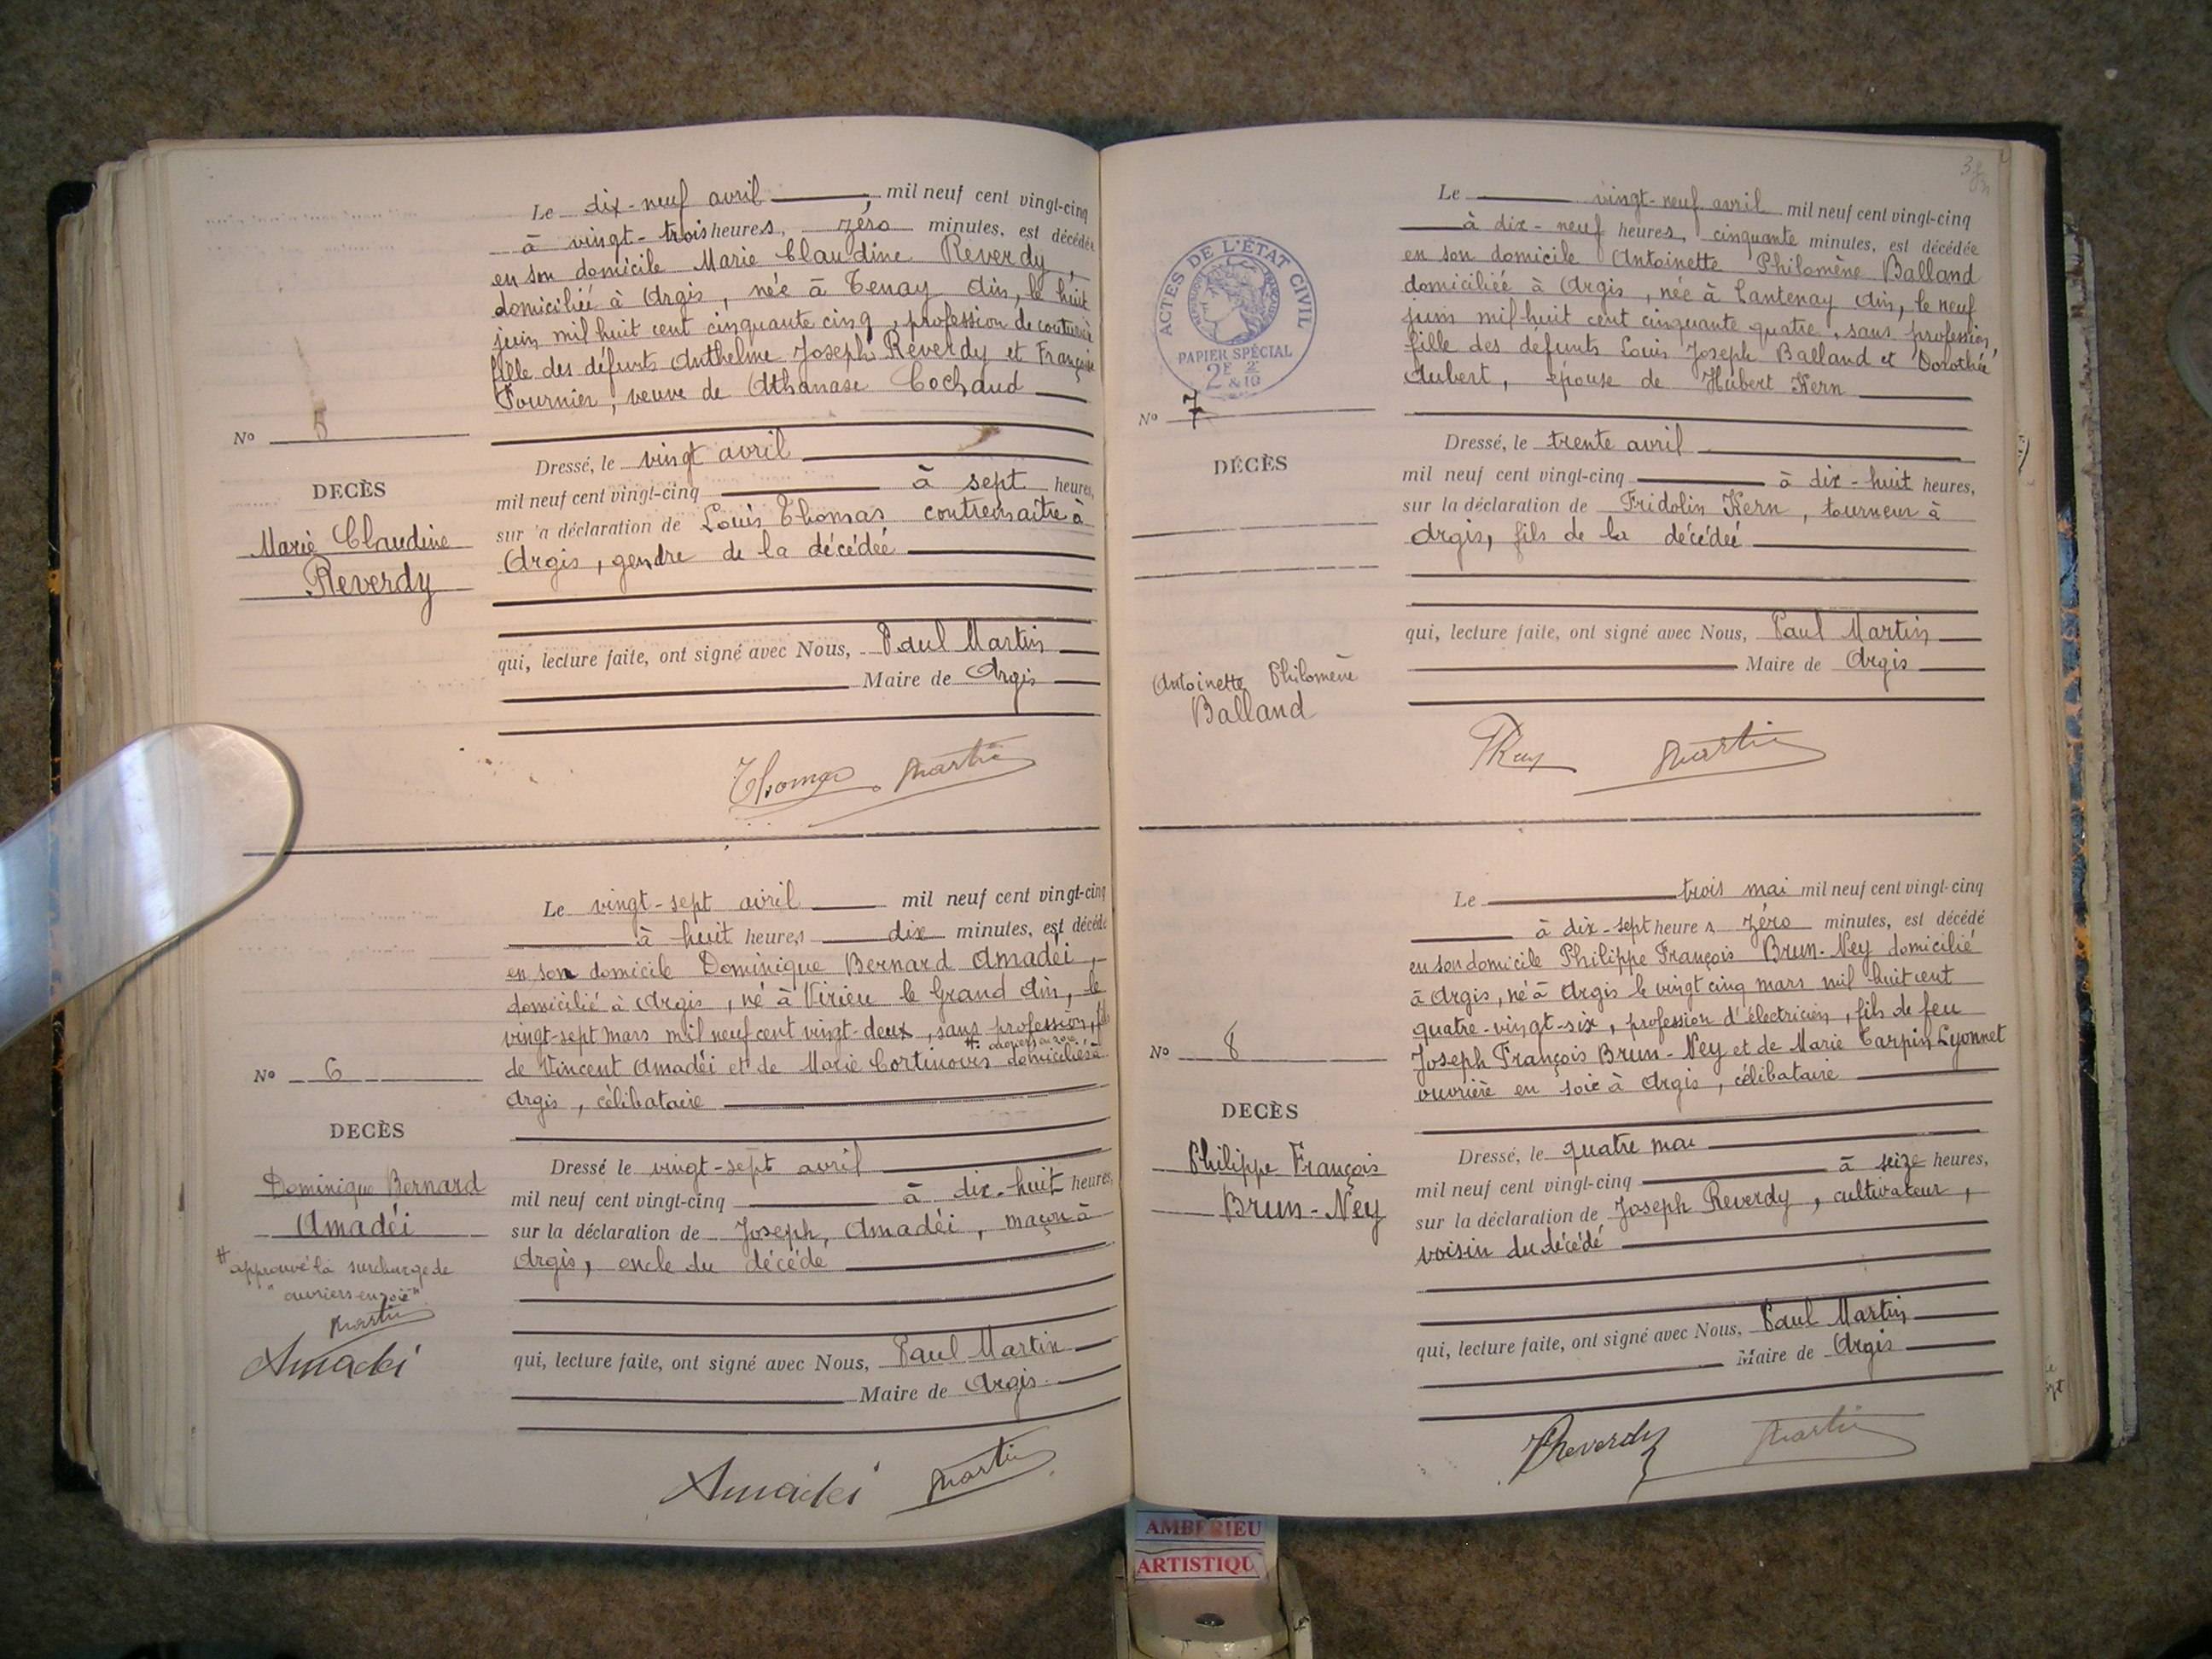 Le dix-neuf avril mil neuf cent vingt-cinq
à vingt-trois heures, zéro minutes, est décédée
en son domicile Marie Claudine Reverdy,
domiciliée à Argis, née à Tenay Ain, le huit
juin mil huit cent cinquante cinq, profession de couturière
fille des défunts Anthelme Joseph Reverdy et Françoise
Fournier, veuve de Athanase Cochaud
No 5
Dressé, le vingt avril
mil neuf cent vingt-cinq à sept heures,
sur a déclaration de Louis Thomas contremaître à
Argis, gendre de la décédée
DECÈS
Marie Claudine
Reverdy
qui, lecture faite, ont signé avec Nous, Paul Martin
Maire de Argis
Thomas Martin
Le vingt-sept avril mil neuf cent vingt-cinq
à huit heures dix minutes, est décédé
en son domicile Dominique Bernard Amadéi,
domicilié à Argis, né à Virieu le Grand Ain, le
vingt-sept mars mil neuf cent vingt-deux, sans profession, fils
# ouvriers en soie
de Vincent Amadéi et de Marie Cortinovis domiciliés à
Argis, célibataire
No 6
DECÈS
Dominique Bernard
Amadéi
# approuvé la surcharge de
"ouvriers en soie"
Martin
Amadei
Dressé le vingt-sept avril
mil neuf cent vingt-cinq à dix-huit heures,
sur la déclaration de Joseph, Amadéi, maçon à
Argis, oncle du décédé
qui, lecture faite, ont signé avec Nous, Paul Martin
Maire de Argis.
Amadei Martin
Le vingt-neuf avril mil neuf cent vingt-cinq
à dix-neuf heures, cinquante minutes, est décédée
en son domicile Antoinette Philomène Balland
domiciliée à Argis, née à Lantenay Ain, le neuf
juin mil-huit cent cinquante quatre, sans profession,
fille des défunts Louis Joseph Balland et Dorothée
Aubert, épouse de Hubert Kern
ACTES DE L'ÉTAT CIVIL
RÉPUBLIQUE FRANÇAISE
PAPIER SPÉCIAL
2F 2
& 10
No 7
DÉCÈS
Antoinette Philomène
Balland
Dressé, le trente avril
mil neuf cent vingt-cinq à dix-huit heures,
sur la déclaration de Fridolin Kern, tourneur à
Argis, fils de la décédée
qui, lecture faite, ont signé avec Nous, Paul Martin
Maire de Argis
Martin
Le trois mai mil neuf cent vingt-cinq
à dix-sept heures zéro minutes, est décédé
en son domicile Philippe François Brun-Ney domicilié
à Argis, né à Argis le vingt cinq mars mil huit cent
quatre-vingt-six, profession d'électricien, fils de feu
Joseph François Brun-Ney et de Marie Carpin Lyonnet
ouvrière en soie à Argis, célibataire
No 8
DECÈS
Philippe François
Brun-Ney
Dressé, le quatre mai
mil neuf cent vingt-cinq à seize heures,
sur la déclaration de Joseph Reverdy, cultivateur,
voisin du décédé
qui, lecture faite, ont signé avec Nous, Paul Martin
Maire de Argis
Reverdy Martin
AMBERIEU
ARTISTIQU